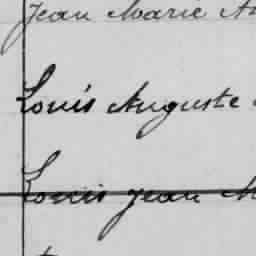 Jean Marie
Louis Auguste
Louis Jean